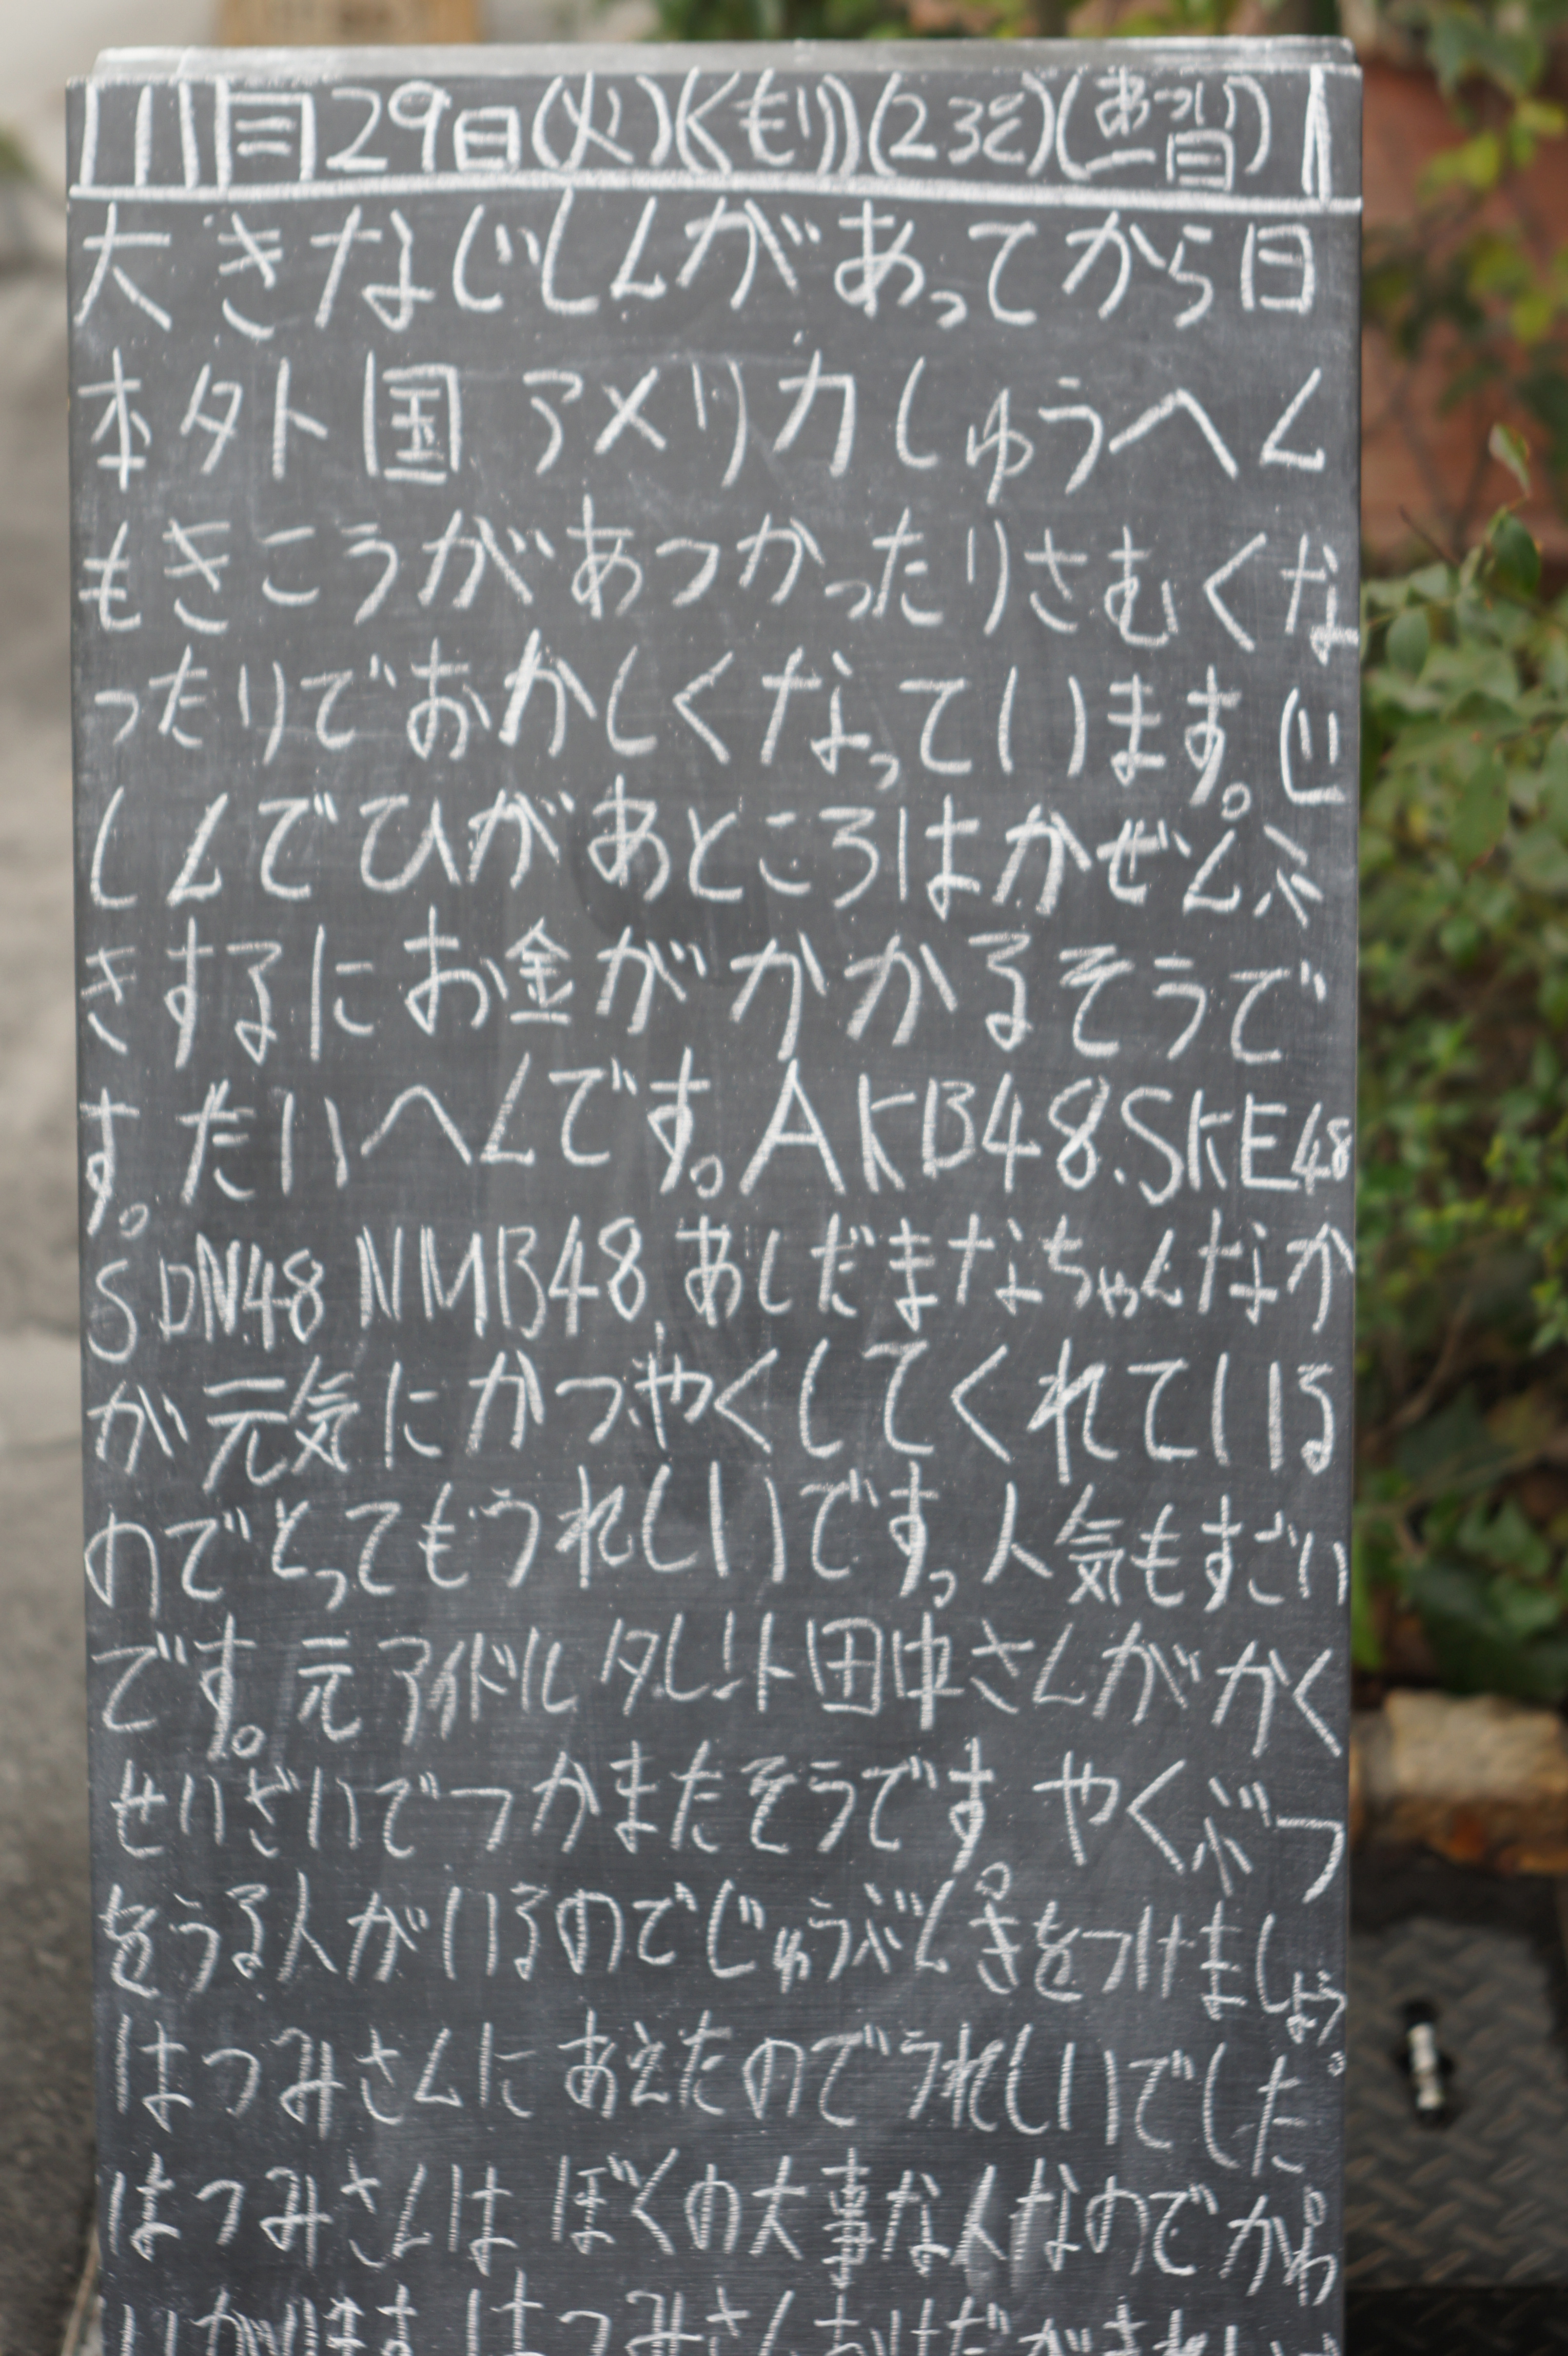 11月29日(火)(くもり)(23ど)(あつい一日)
大きなじしんがあってから日
本外国アメリカしゅうへん
もきこうがあつかったりさむくな
ったりでおかしくなっています。じ
しんでひがあところはかぜんぶ
きするにお金がかかるそうで
す。たいへんです。AKB48.SKE48
SDN48 NMB48 あしだまなちゃんなか
が元気にかつやくしてくれている
のでとってもうれしいです。人気もすごい
です。元アイドルタレント田中さんがかく
せいざいでつかまたそうです。やくぶつ
をうる人がいるのでじゅうぶんきをつけましょう。
はつみさんにあえたのでうれしいでした
はつみさんはぼくの大事な人なのでかわ